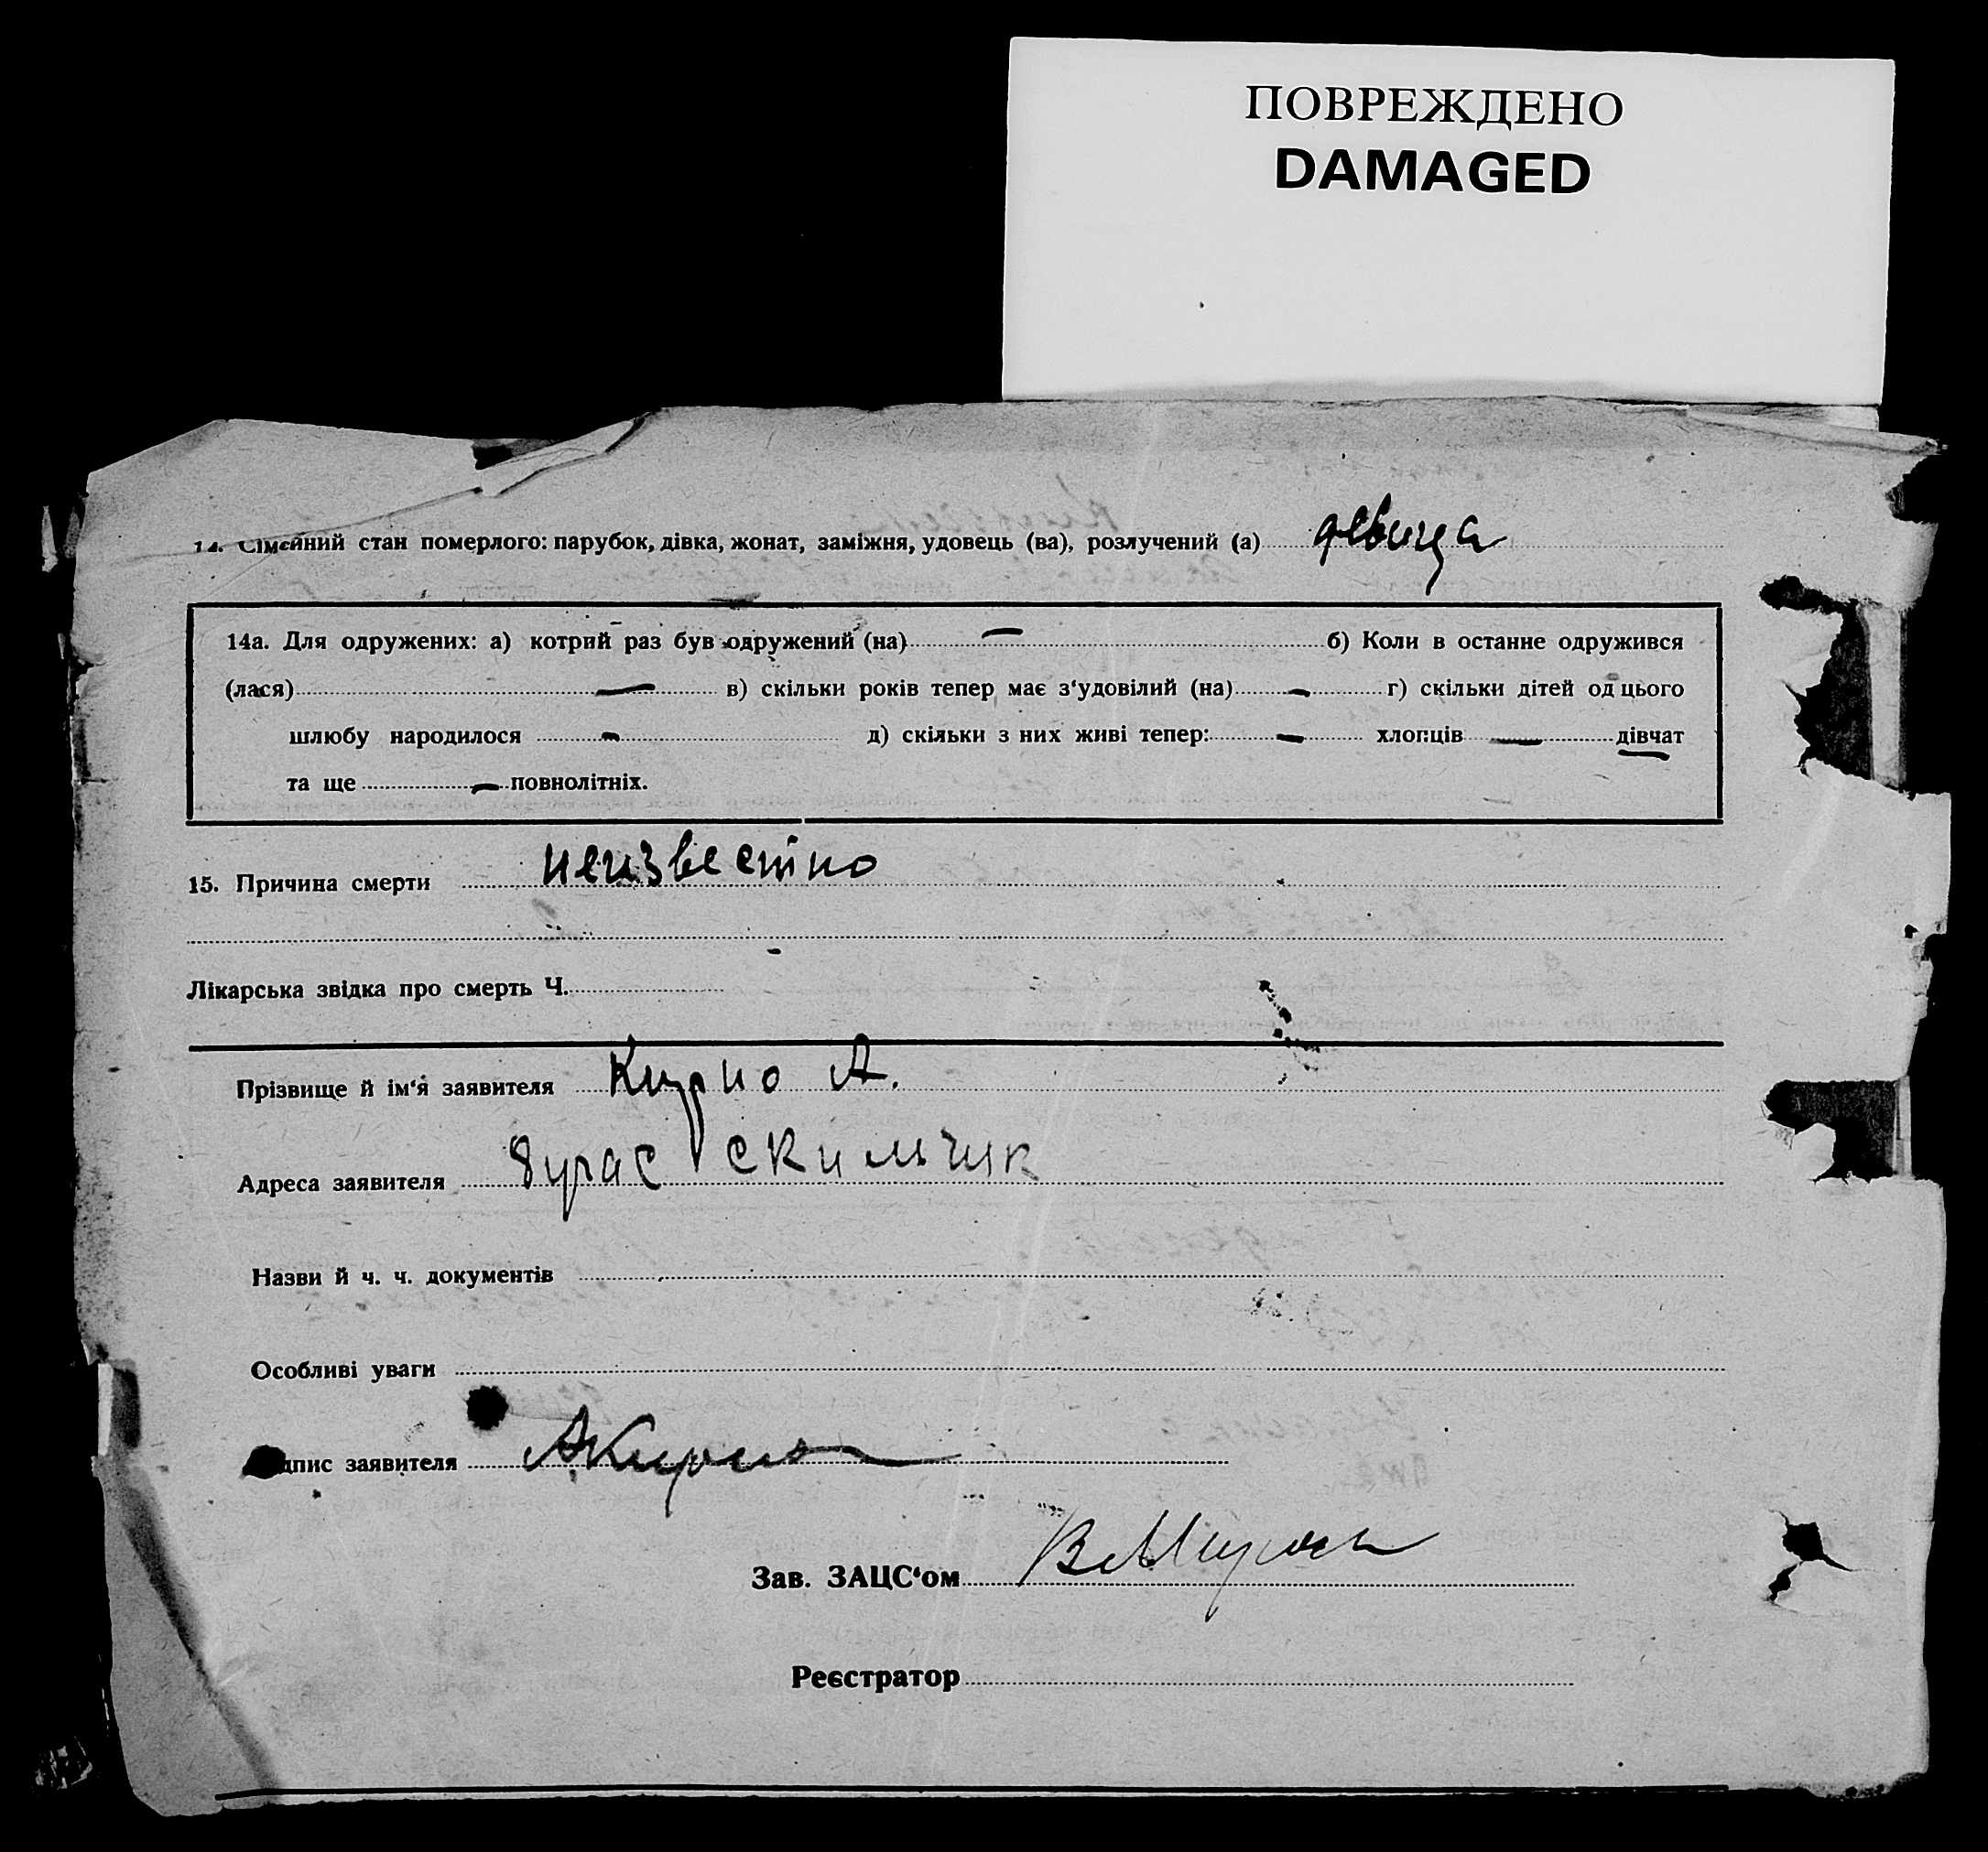 ПОВРЕЖДЕНО
DAMAGED
14. Сімейний стан померлого: парубок, дівка, жонат, заміжня, удовець (ва), розлучений (а) девица
14а. Для одружених: а) котрий раз був одружений (на) — б) Коли в останне одружився
(лася) — в) скільки років тепер має з‘удовілий (на) — г) скільки дітей од цього
шлюбу народилося — д) скільки з них живі тепер: — хлопців — дівчат
та ще — повнолітніх.
15. Причина смерти неизвестно
Лікарська звідка про смерть Ч.
Прізвище й ім‘я заявителя Курно А.
Адреса заявителя
Назви й ч. ч. документів
Особливі уваги
дпис заявителя АКурно
Зав. ЗАЦС‘ом
Реєстратор